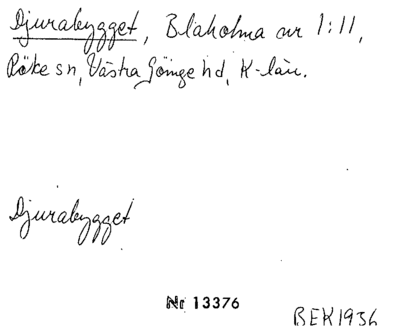 Djurabygget, Blåholma nr 1:11,
Röke sn, Västra Göinge hd, K-län.
Djurabygget
Nr 13376
BEK1936